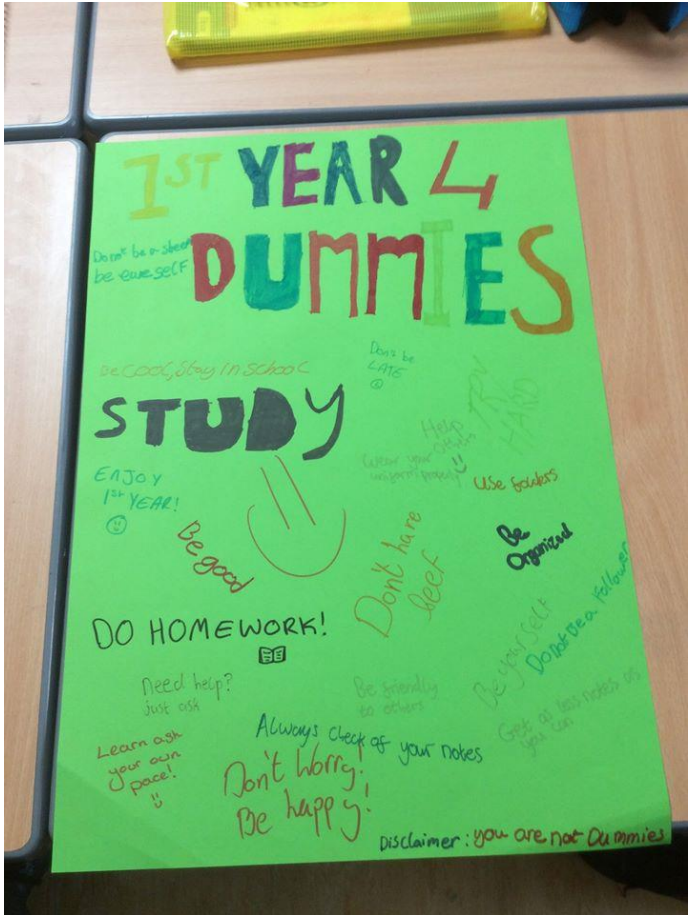 1ST YEAR 4
DUMMIES
Don't be a sheep
be eweself
Be COOL, Stay in School
Don't be
LATE
TRY
HARD
STUDY
Help
others
Wear your
uniform properly
Use folders
ENJOY
1st YEAR!
Be good
Don't have
beef
Be
Organized
DO HOMEWORK!
Be Yourself
Do not be a follower
Need help?
just ask
Be friendly
to others
Get as less notes as
you can
Always check of your notes
Learn ask
your own
pace!
Don't Worry!
Be happy!
Disclaimer: you are not Dummies